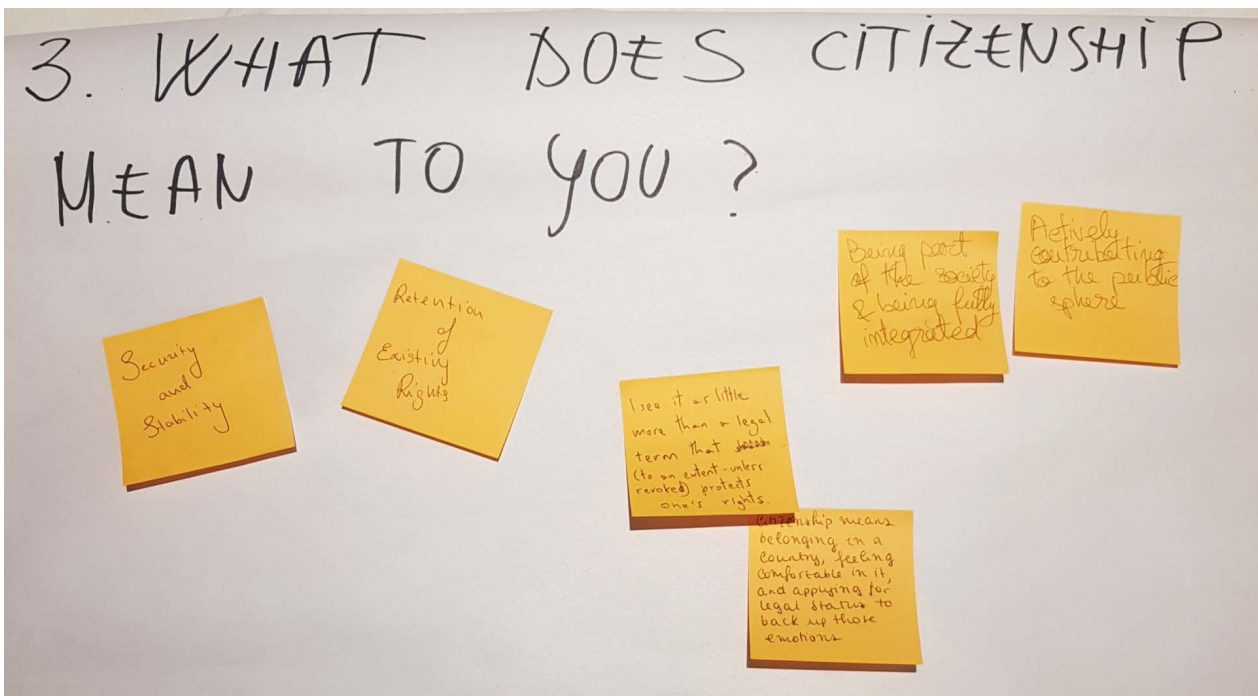 3. WHAT DOES CITIZENSHIP
MEAN TO YOU?
Security
and
Stability
Retention
of
Existing
Rights
I see it as little
more than a legal
term that
(to an extent - unless
revoked) protects
one's rights.
Citizenship means
belonging in a
country, feeling
comfortable in it,
and appying for
legal status to
back up those
emotions
Being part
of the society
& being fully
integrated
Actively
contributing
to the public
sphere